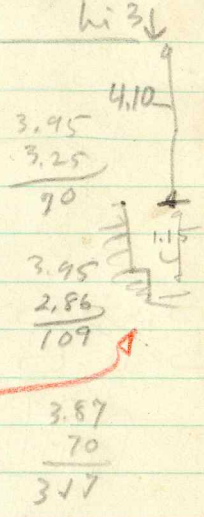 hi 3
4.10
3.95
3.25
70
1.15
3.95
2.86
109
3.87
70